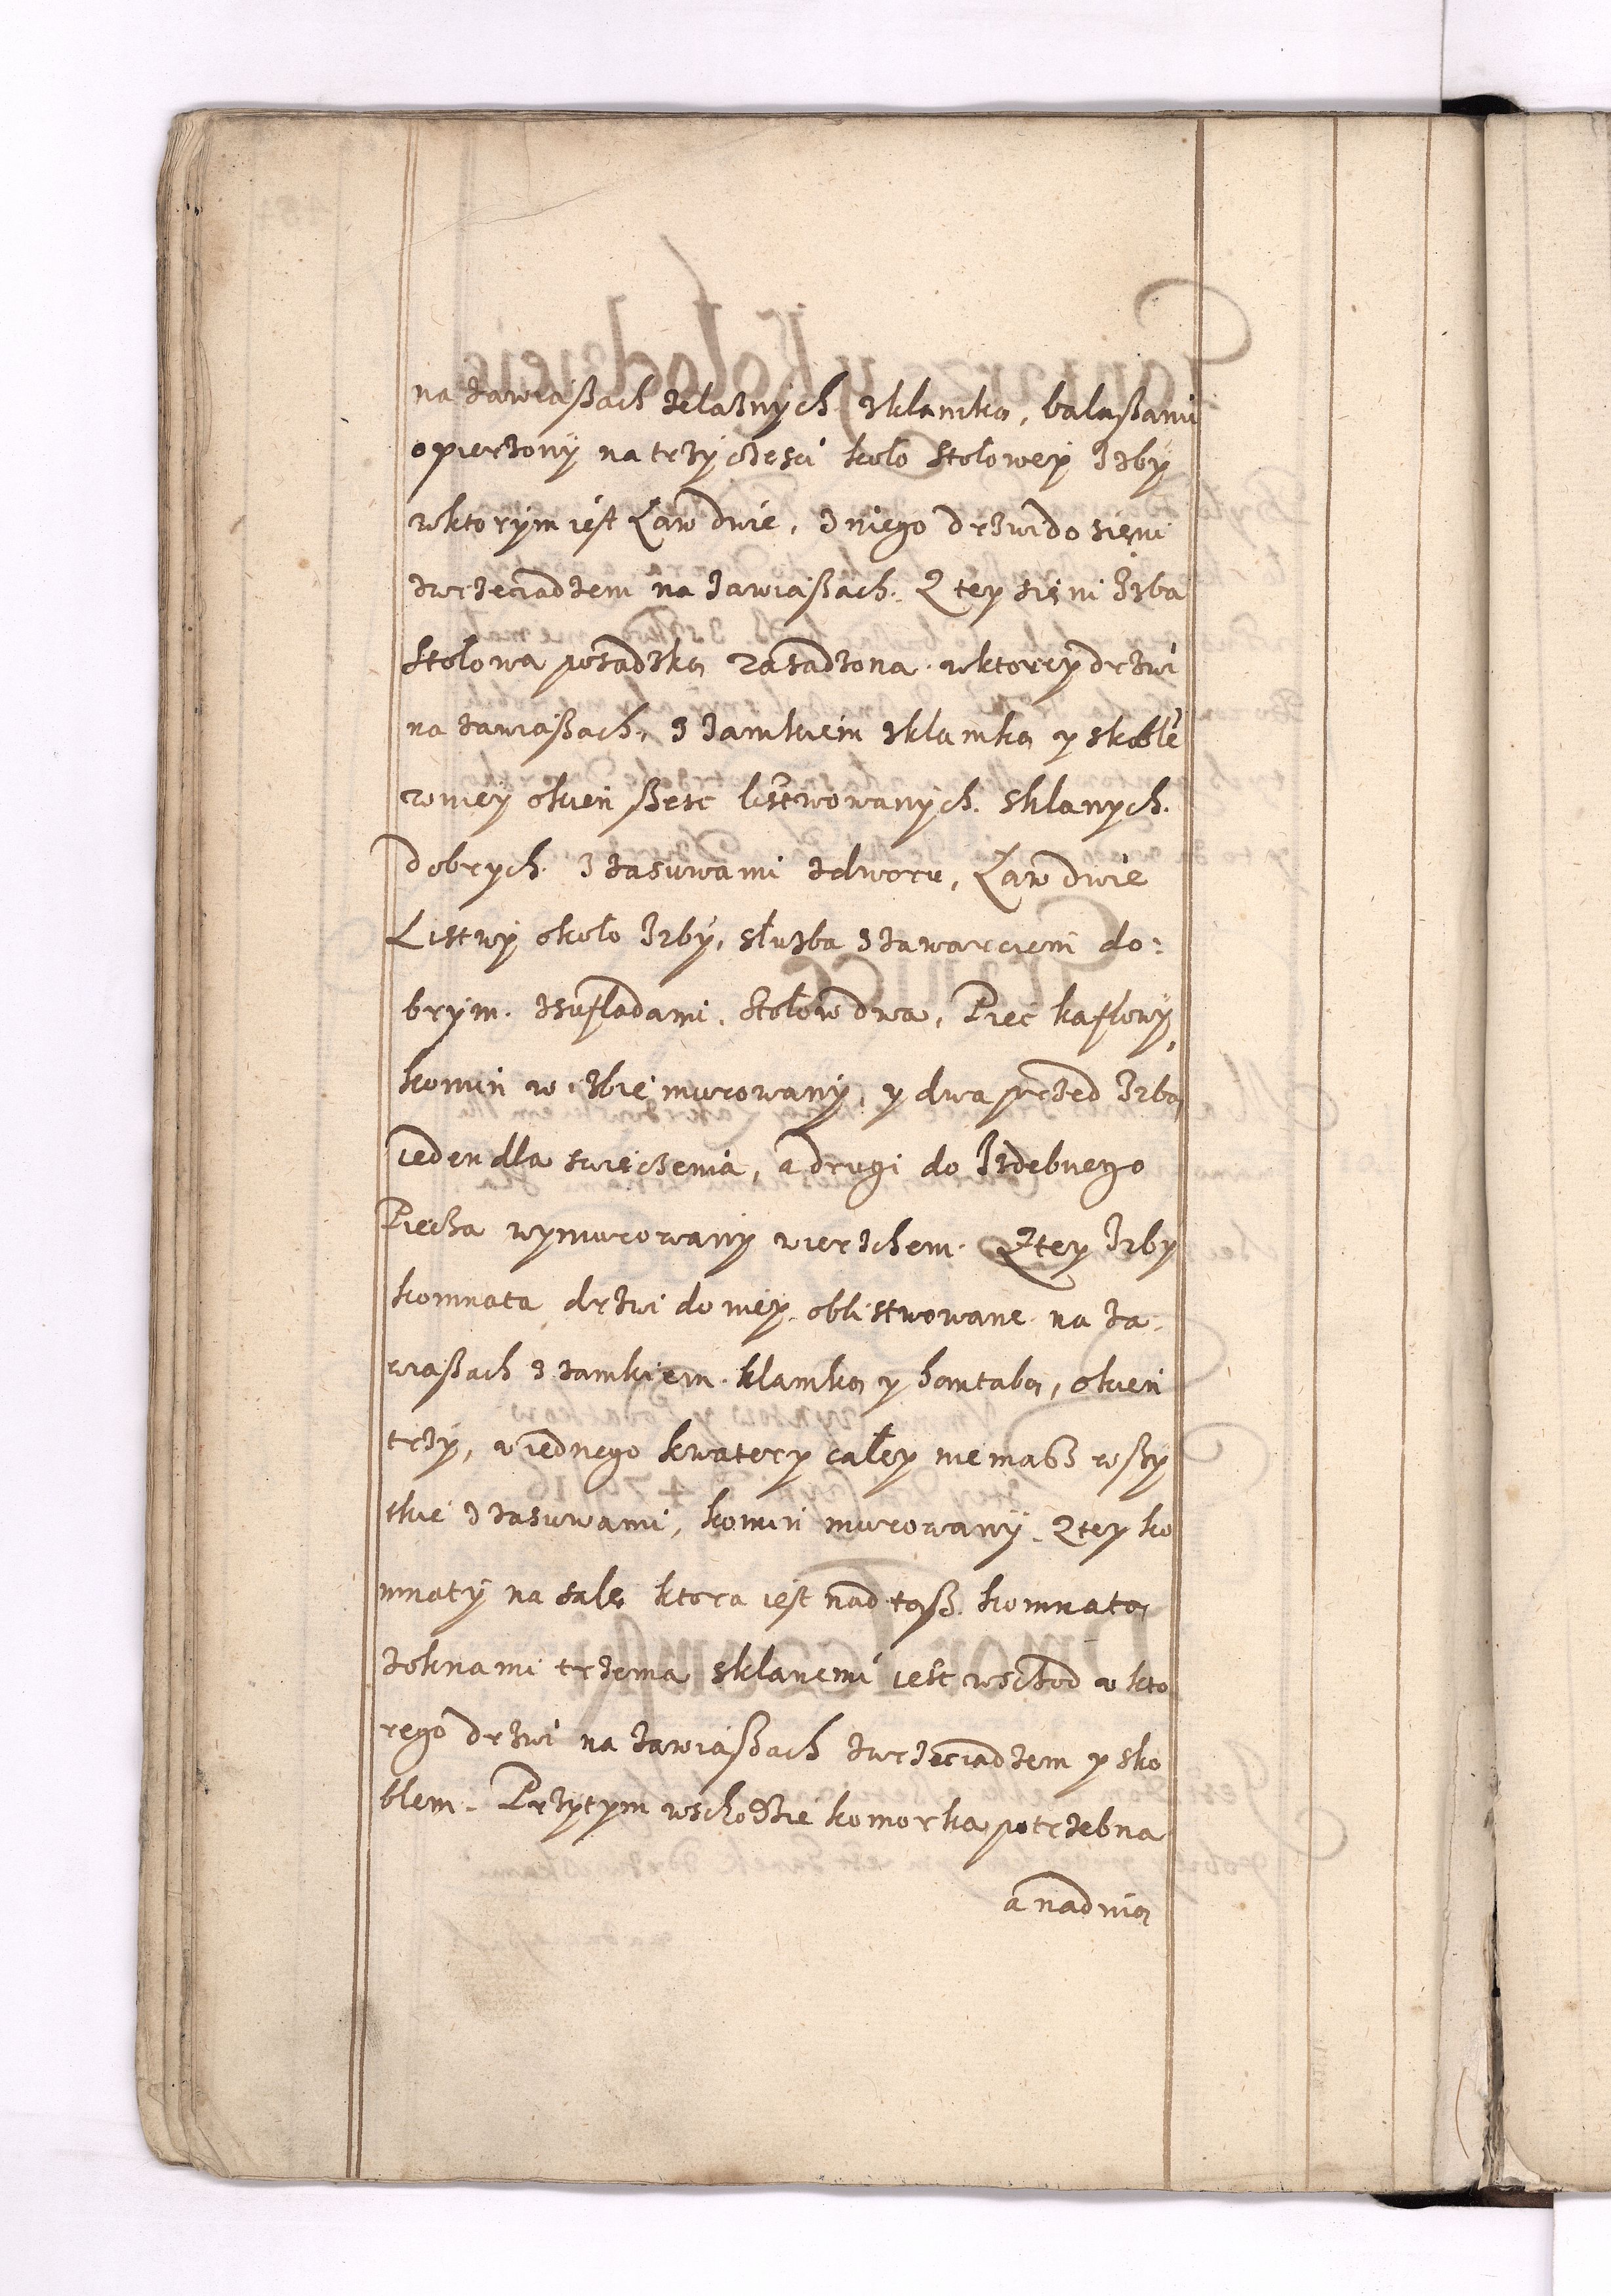 na zawiaßach żelaznych zklamką, balaßami
opierzony na trzy cześci koło Stołowey Izby
wktorym iest Ław dwie, z niego drzwi do sięni
zwrzeciadzem na zawiaßach. Z tey sięni Izba
Stołowa posadzką zasadzona wktorey drzwi
na zawiaßach, z zamkiem zklamką y skoble
wniey okien ßesc listwowanych. sklanych.
dobrych. z zasuwami zdworu, Ław dwie
Listwy około Izby, służba z zawarciem do:
brym. zsufladami, Stołow dwa, Piec kaflowy,
komin w izbie murowany, y dwa przed Izbą
ieden dla swieczenia, a drugi do Izdebnego
Piecza wymurowany wierzchem. Z tey Izby
komnata drzwi do niey oblistwowane na za-
wiaßach z zamkiem klamką y hantabą, okien
trzy, u iednego kwatery całey niemaß wßy
tkie z zasuwami, komin murowany. Z tey ko
mnaty na salę ktora iest nad tąß komnatą
zoknami trzema sklanemi iest wschod u kto
rego drzwi na zawiaßach zwrzeciadzem y sko
blem. Przytym wschodzie komorka potrzebna
a nad nią